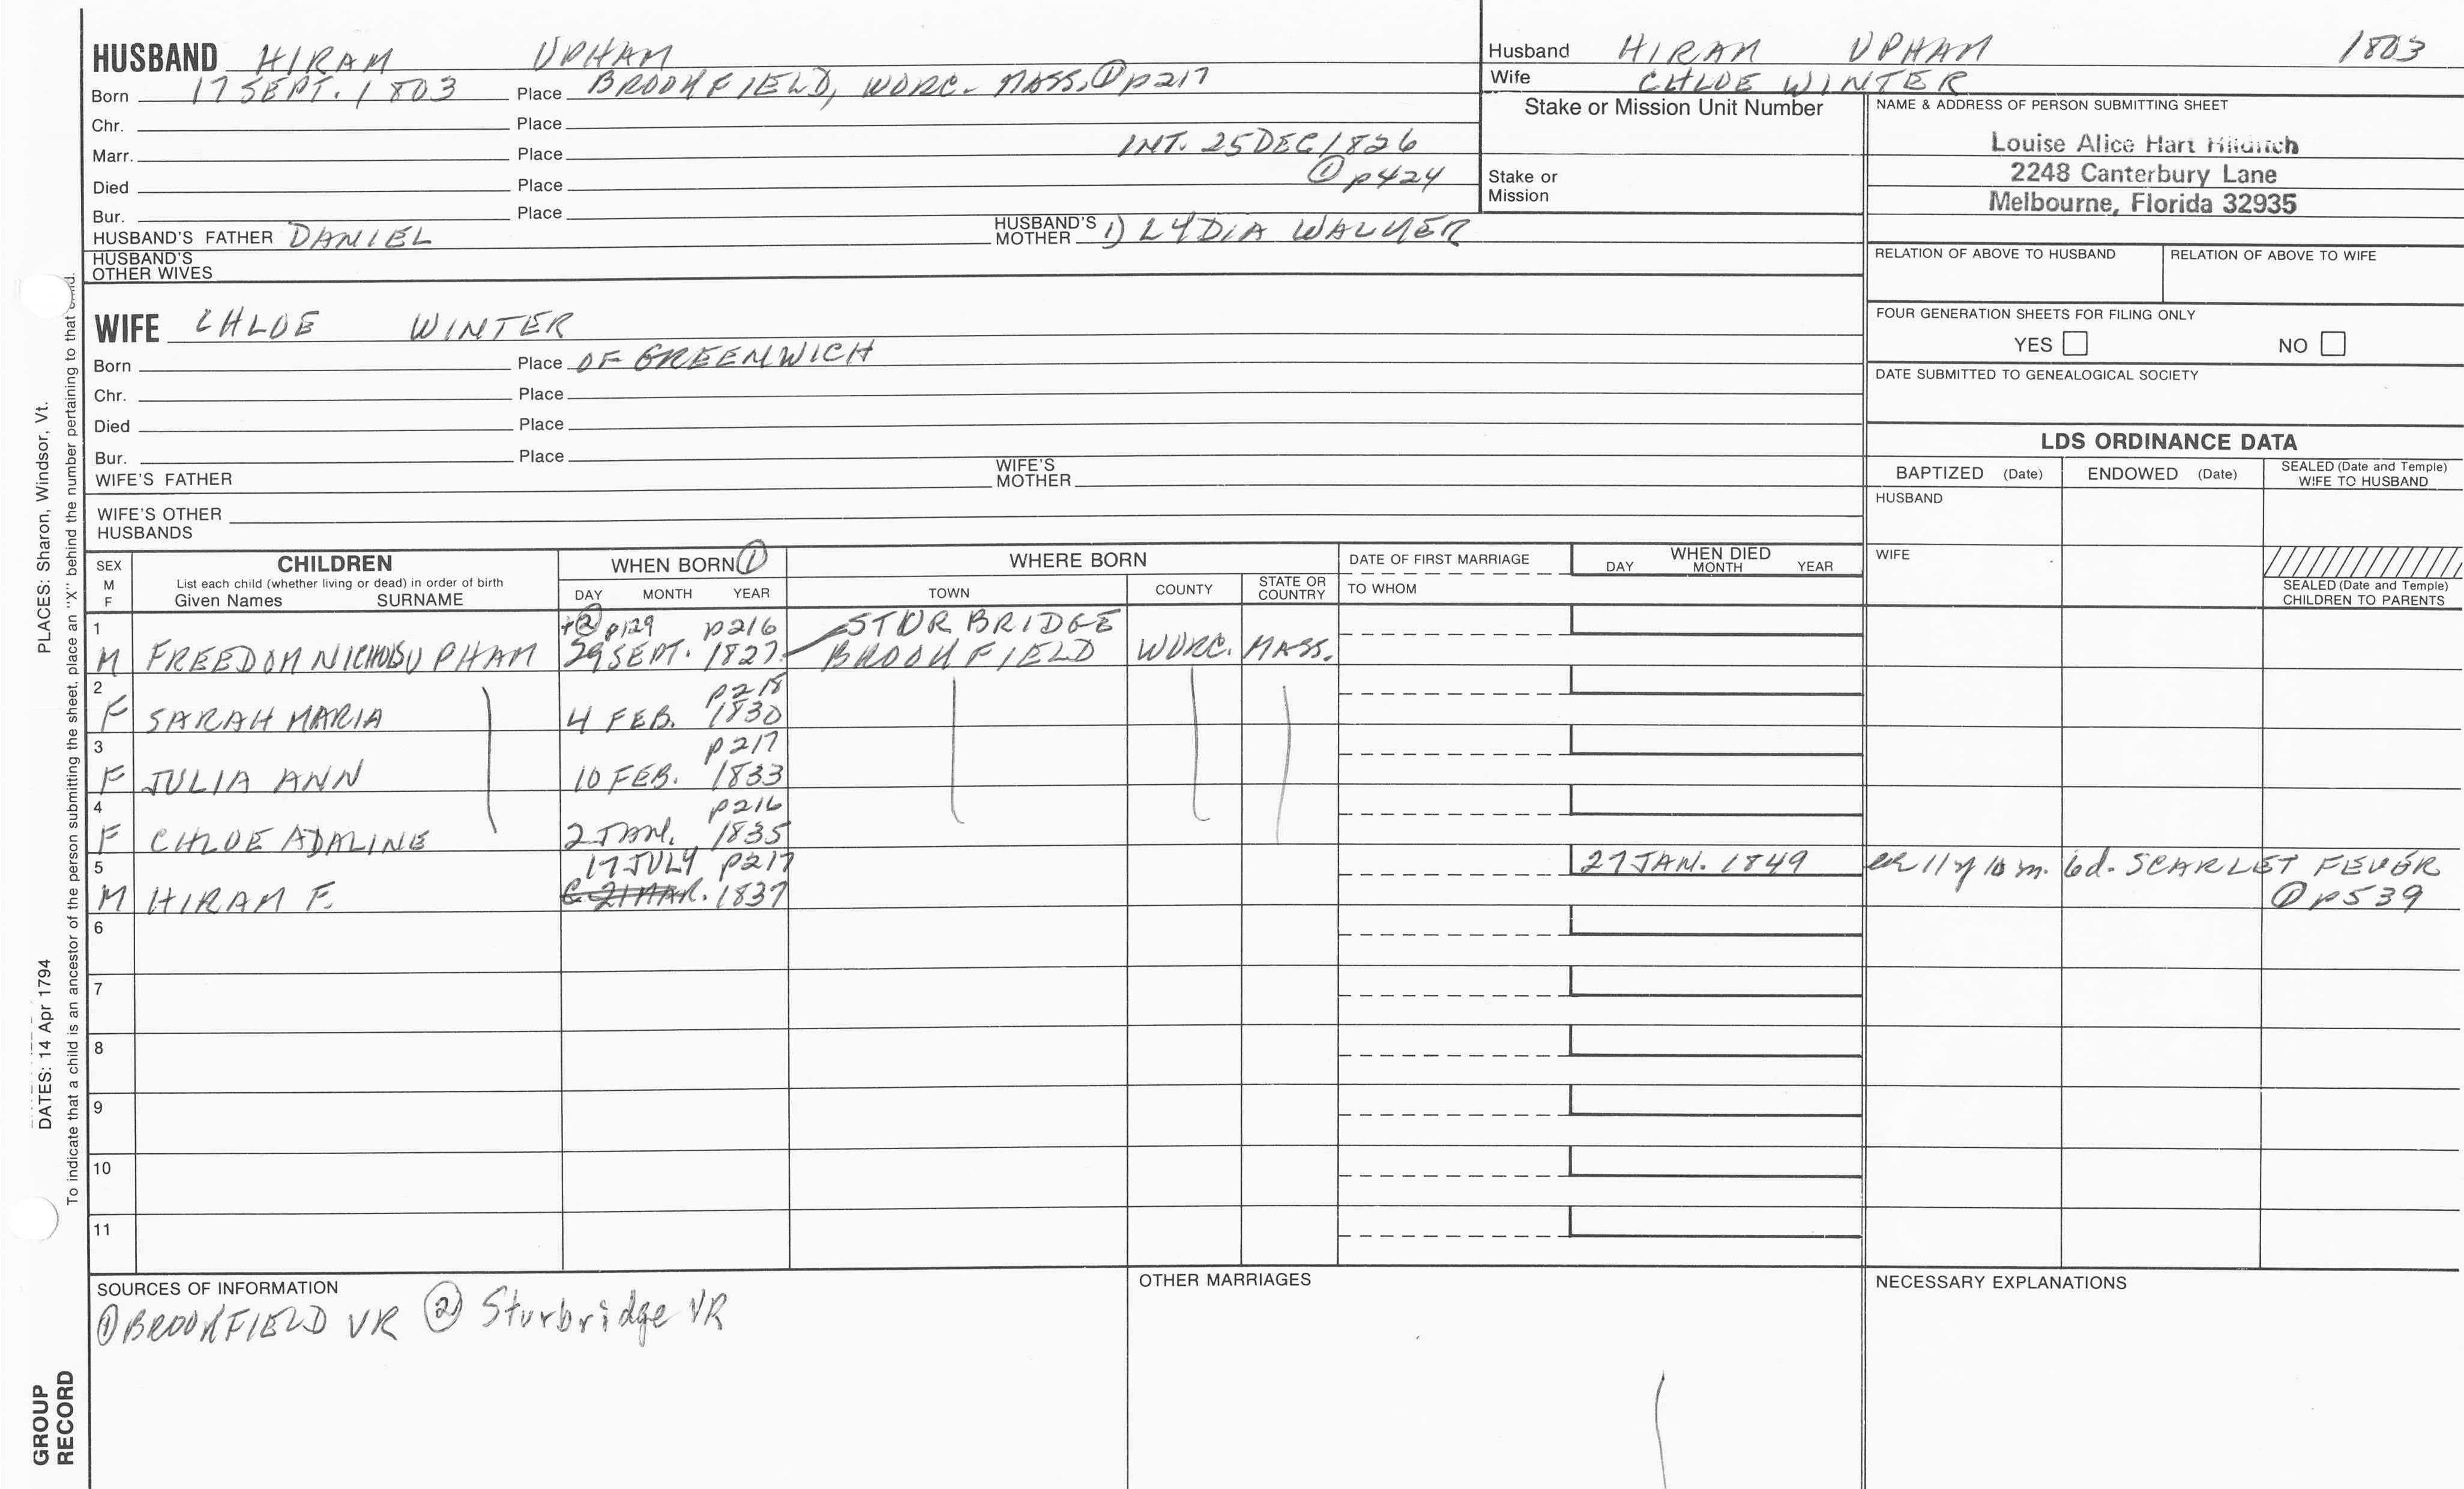 HUSBAND HIRAM UPHAM
Born 17 SEPT. 1803 Place BROOKFIELD, WORC. MASS. ① p217
Chr. Place
Marr. Place INT. 25 DEC 1826
Died Place ① p424
Bur. Place
HUSBAND'S FATHER DANIEL HUSBAND'S MOTHER 1) LYDIA WALKER
HUSBAND'S OTHER WIVES
Husband HIRAM UPHAM 1803
Wife CHLOE WINTER
Stake or Mission Unit Number
Stake or Mission
NAME & ADDRESS OF PERSON SUBMITTING SHEET
Louise Alice Hart
2248 Canterbury Lane
Melbourne, Florida 32935
RELATION OF ABOVE TO HUSBAND RELATION OF ABOVE TO WIFE
FOUR GENERATION SHEETS FOR FILING ONLY
YES NO
DATE SUBMITTED TO GENEALOGICAL SOCIETY
WIFE CHLOE WINTER
Born Place OF GREENWICH
Chr. Place
Died Place
Bur. Place
WIFE'S FATHER WIFE'S MOTHER
WIFE'S OTHER HUSBANDS
LDS ORDINANCE DATA
BAPTIZED (Date) ENDOWED (Date) SEALED (Date and Temple) WIFE TO HUSBAND
HUSBAND
WIFE
SEALED (Date and Temple) CHILDREN TO PARENTS
SEX M F
CHILDREN
List each child (whether living or dead) in order of birth
Given Names SURNAME
WHEN BORN ①
DAY MONTH YEAR
WHERE BORN
TOWN COUNTY STATE OR COUNTRY
DATE OF FIRST MARRIAGE
TO WHOM
WHEN DIED
DAY MONTH YEAR
1 + ② p129 p216 STURBRIDGE
M FREEDOM NICHOLS UPHAM 29 SEPT. 1827 BROOKFIELD WORC. MASS.
2 p218
F SARAH MARIA 4 FEB. 1830
3 p217
F JULIA ANN 10 FEB. 1833
4 p216
F CHLOE ADALINE 2 JAN. 1835
5 17 JULY p217 27 JAN. 1849 11 y 10 m. 6d. SCARLET FEVER
M HIRAM F. C 21 MAR. 1837 ① p539
6
7
8
9
10
11
SOURCES OF INFORMATION
① BROOKFIELD VR ② Sturbridge VR
OTHER MARRIAGES
NECESSARY EXPLANATIONS
PLACES: Sharon, Windsor, Vt.
DATES: 14 Apr 1794
To indicate that a child is an ancestor of the person submitting the sheet, place an "X" behind the number pertaining to that child.
GROUP
RECORD